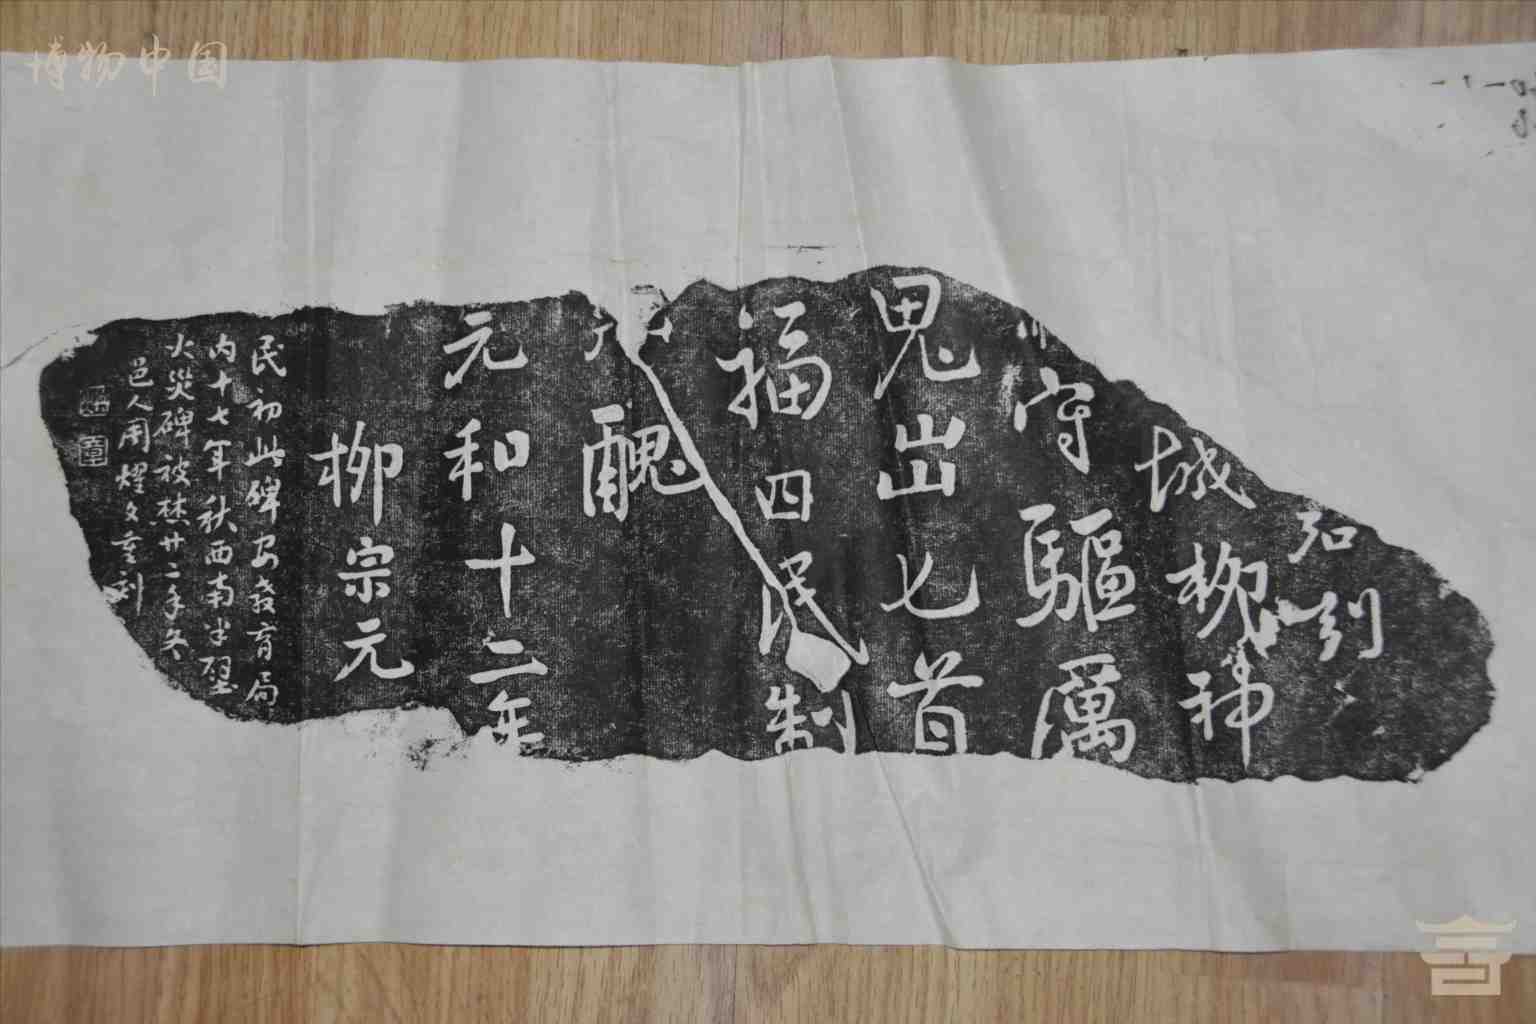 博物中国
刻
城柳神
守驅厲
鬼出匕首
福四民制
醜
元和十二年
柳宗元
民初此碑安教育局
内十七年秋西南半壁
火災碑被焚廿二年冬
邑人周耀文重刻